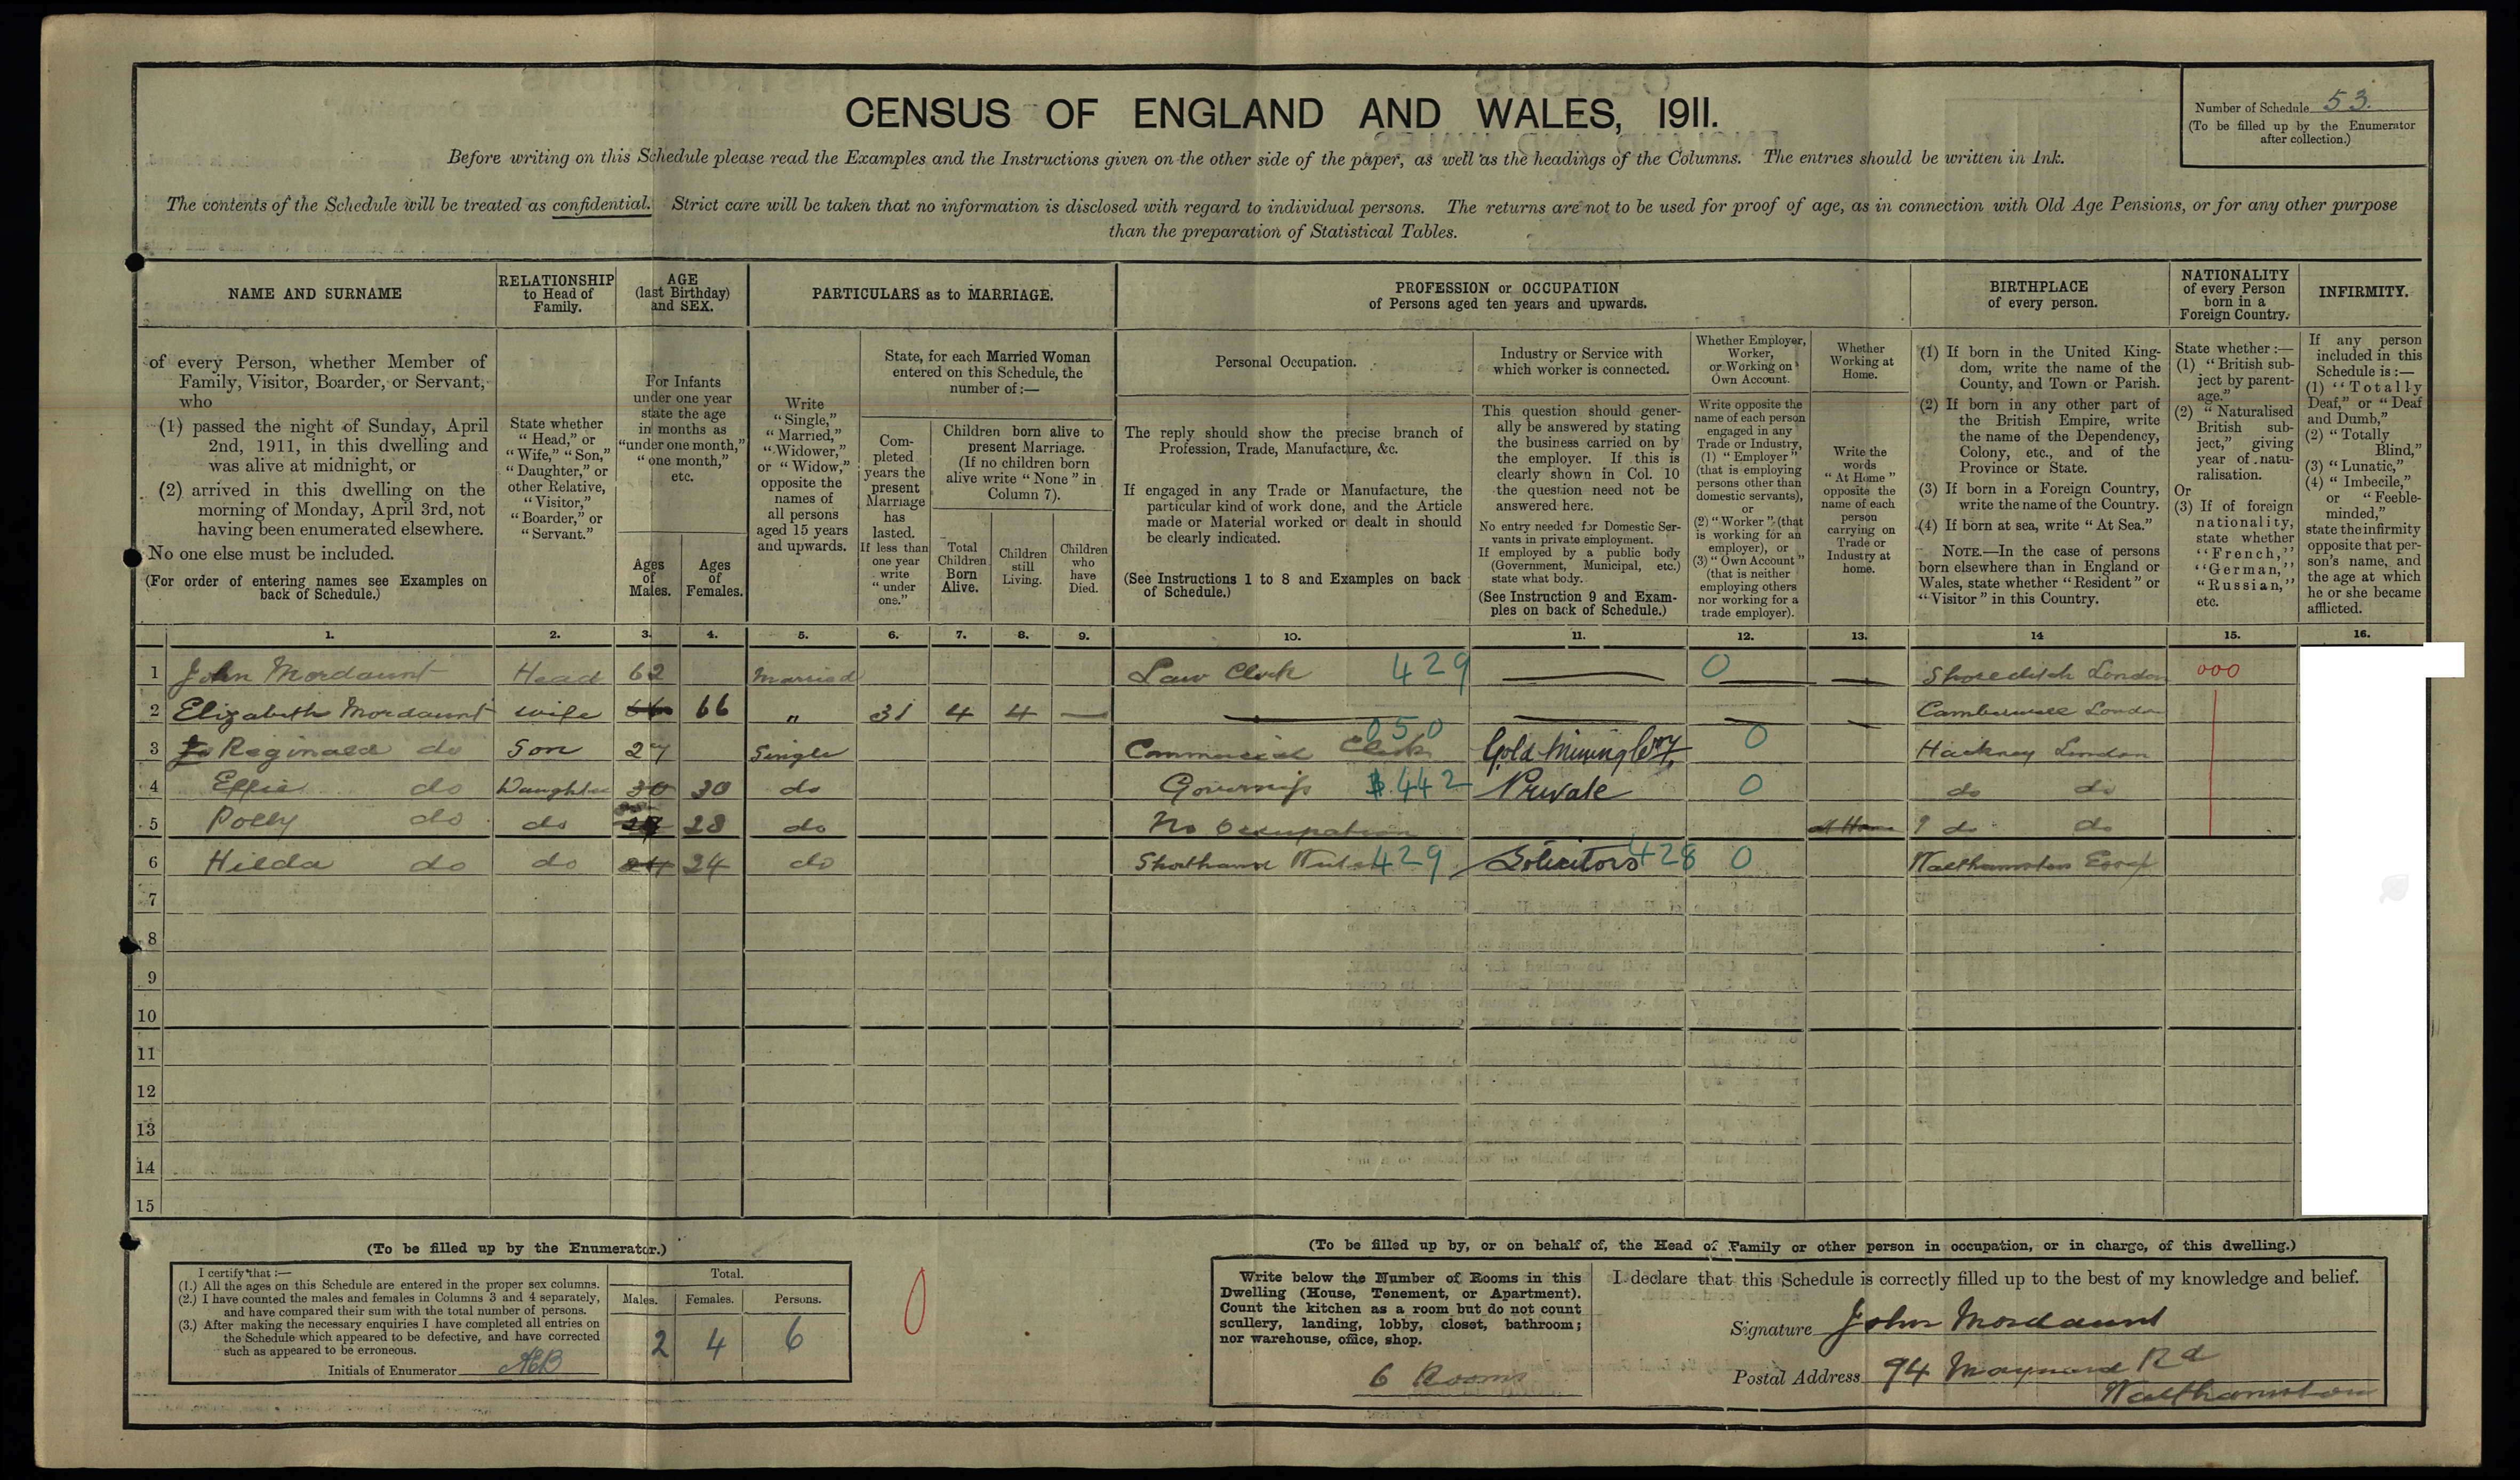 CENSUS OF ENGLAND AND WALES, 1911.
Number of Schedule 53.
(To be filled up by the Enumerator after collection.)
Before writing on this Schedule please read the Examples and the Instructions given on the other side of the paper, as well as the headings of the Columns. The entries should be written in Ink.
The contents of the Schedule will be treated as confidential. Strict care will be taken that no information is disclosed with regard to individual persons. The returns are not to be used for proof of age, as in connection with Old Age Pensions, or for any other purpose
than the preparation of Statistical Tables.
NAME AND SURNAME
of every Person, whether Member of
Family, Visitor, Boarder, or Servant,
who
(1) passed the night of Sunday, April
2nd, 1911, in this dwelling and
was alive at midnight, or
(2) arrived in this dwelling on the
morning of Monday, April 3rd, not
having been enumerated elsewhere.
No one else must be included.
(For order of entering names see Examples on
back of Schedule.)
RELATIONSHIP
to Head of
Family.
State whether
"Head," or
"Wife," "Son,"
"Daughter," or
other Relative,
"Visitor,"
"Boarder," or
"Servant."
AGE
(last Birthday)
and SEX.
For Infants
under one year
state the age
in months as
"under one month,"
"one month,"
etc.
Ages
of
Males.
Ages
of
Females.
PARTICULARS as to MARRIAGE.
Write
"Single,"
"Married,"
"Widower,"
or "Widow,"
opposite the
names of
all persons
aged 15 years
and upwards.
State, for each Married Woman
entered on this Schedule, the
number of:—
Com-
pleted
years the
present
Marriage
has
lasted.
If less than
one year
write
"under
one."
Children born alive to
present Marriage.
(If no children born
alive write "None" in
Column 7).
Total
Children
Born
Alive.
Children
still
Living.
Children
who
have
Died.
PROFESSION or OCCUPATION
of Persons aged ten years and upwards.
Personal Occupation.
The reply should show the precise branch of
Profession, Trade, Manufacture, &c.
If engaged in any Trade or Manufacture, the
particular kind of work done, and the Article
made or Material worked or dealt in should
be clearly indicated.
(See Instructions 1 to 8 and Examples on back
of Schedule.)
Industry or Service with
which worker is connected.
This question should gener-
ally be answered by stating
the business carried on by
the employer. If this is
clearly shown in Col. 10
the question need not be
answered here.
No entry needed for Domestic Ser-
vants in private employment.
If employed by a public body
(Government, Municipal, etc.)
state what body.
(See Instruction 9 and Exam-
ples on back of Schedule.)
Whether Employer,
Worker,
or Working on
Own Account.
Write opposite the
name of each person
engaged in any
Trade or Industry,
(1) "Employer"
(that is employing
persons other than
domestic servants),
or
(2) "Worker" (that
is working for an
employer), or
(3) "Own Account"
(that is neither
employing others
nor working for a
trade employer).
Whether
Working at
Home.
Write the
words
"At Home"
opposite the
name of each
person
carrying on
Trade or
Industry at
home.
BIRTHPLACE
of every person.
(1) If born in the United King-
dom, write the name of the
County, and Town or Parish.
(2) If born in any other part of
the British Empire, write
the name of the Dependency,
Colony, etc., and of the
Province or State.
(3) If born in a Foreign Country,
write the name of the Country.
(4) If born at sea, write "At Sea."
NOTE.—In the case of persons
born elsewhere than in England or
Wales, state whether "Resident" or
"Visitor" in this Country.
NATIONALITY
of every Person
born in a
Foreign Country.
State whether:—
(1) "British sub-
ject by parent-
age."
(2) "Naturalised
British sub-
ject," giving
year of natu-
ralisation.
Or
(3) If of foreign
nationality,
state whether
"French,"
"German,"
"Russian,"
etc.
INFIRMITY.
If any person
included in this
Schedule is:—
(1) "Totally
Deaf," or "Deaf
and Dumb,"
(2) "Totally
Blind,"
(3) "Lunatic,"
(4) "Imbecile,"
or "Feeble-
minded,"
state the infirmity
opposite that per-
son's name, and
the age at which
he or she became
afflicted.
1. 2. 3. 4. 5. 6. 7. 8. 9. 10. 11. 12. 13. 14 15. 16.
1 John Mordaunt Head 62 Married Law Clerk 429 0 Shoreditch London 000
2 Elizabeth Mordaunt wife 66 66 „ 31 4 4 — Camberwell London
3 Reginald do Son 27 Single Commercial Clerk 050 Gold Mining Coy 0 Hackney London
4 Effie do Daughter 30 30 do Governess 442 Private 0 do do
5 Polly do do 28 do No Occupation At Home do do
6 Hilda do do 24 24 do Shorthand Writer 429 Solicitors 428 0 Walthamstow Essex
7
8
9
10
11
12
13
14
15
(To be filled up by the Enumerator.)
I certify that:—
(1.) All the ages on this Schedule are entered in the proper sex columns.
(2.) I have counted the males and females in Columns 3 and 4 separately,
and have compared their sum with the total number of persons.
(3.) After making the necessary enquiries I have completed all entries on
the Schedule which appeared to be defective, and have corrected
such as appeared to be erroneous.
Initials of Enumerator
Total.
Males. Females. Persons.
2 4 6
0
(To be filled up by, or on behalf of, the Head of Family or other person in occupation, or in charge, of this dwelling.)
Write below the Number of Rooms in this
Dwelling (House, Tenement, or Apartment).
Count the kitchen as a room but do not count
scullery, landing, lobby, closet, bathroom;
nor warehouse, office, shop.
6 Rooms
I declare that this Schedule is correctly filled up to the best of my knowledge and belief.
Signature John Mordaunt
Postal Address 94 Maynard Rd
Walthamstow